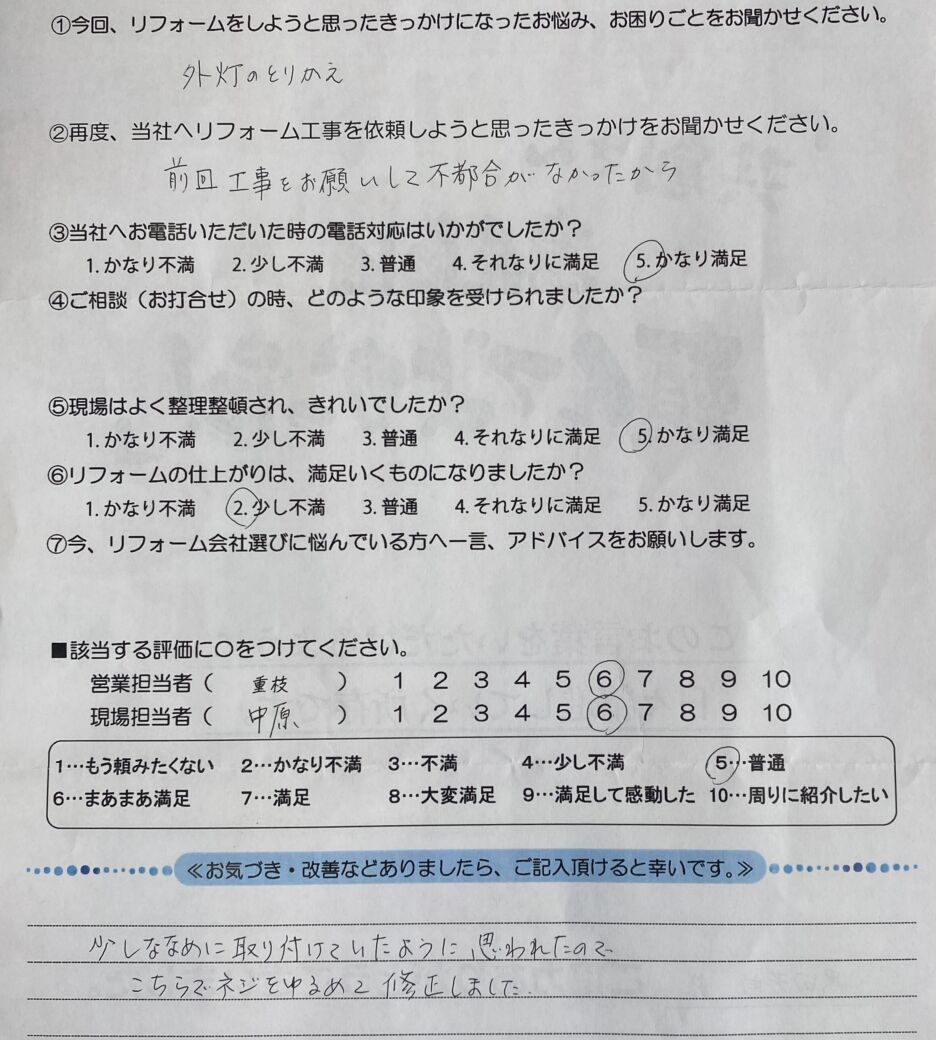 ①今回、リフォームをしようと思ったきっかけになったお悩み、お困りごとをお聞かせください。
外灯のとりかえ
②再度、当社へリフォーム工事を依頼しようと思ったきっかけをお聞かせください。
前回工事をお願いして不都合がなかったから
③当社へお電話いただいた時の電話対応はいかがでしたか？
1.かなり不満 2.少し不満 3.普通 4.それなりに満足 5.かなり満足
④ご相談（お打合せ）の時、どのような印象を受けられましたか？
⑤現場はよく整理整頓され、きれいでしたか？
1.かなり不満 2.少し不満 3.普通 4.それなりに満足 5.かなり満足
⑥リフォームの仕上がりは、満足いくものになりましたか？
1.かなり不満 2.少し不満 3.普通 4.それなりに満足 5.かなり満足
⑦今、リフォーム会社選びに悩んでいる方へ一言、アドバイスをお願いします。
■該当する評価に〇をつけてください。
営業担当者（ 重枝 ） 1 2 3 4 5 6 7 8 9 10
現場担当者（ 中原 ） 1 2 3 4 5 6 7 8 9 10
1…もう頼みたくない 2…かなり不満 3…不満 4…少し不満 5…普通
6…まあまあ満足 7…満足 8…大変満足 9…満足して感動した 10…周りに紹介したい
≪お気づき・改善などありましたら、ご記入頂けると幸いです。≫
少しななめに取り付けていたように思われたので
こちらでネジをゆるめて修正しました.